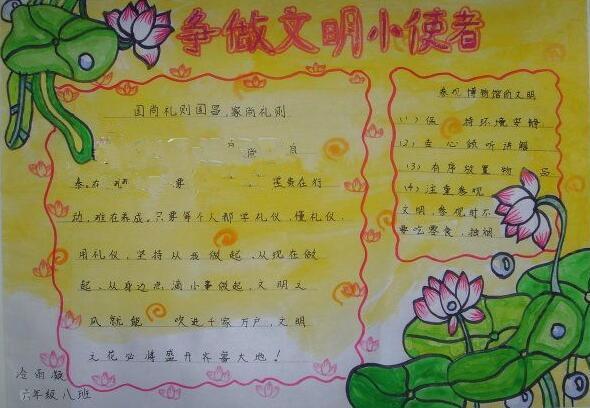 争做文明小使者
国尚礼则国昌，家尚礼则
尚
泰。在 要 ，贵在行
动，难在养成。只要每个人都学礼仪，懂礼仪，
用礼仪，坚持从我做起、从现在做
起、从身边点滴小事做起，文明之
风就能 吹进千家万户，文明
之花必将盛开齐鲁大地！
参观博物馆的文明
(1) 保 持环境安静
(2) 专心倾听讲解
(3) 有序放置物 品
(4) 注重参观
文明，参观时不
要吃零食，抽烟
冷雨
六年级八班